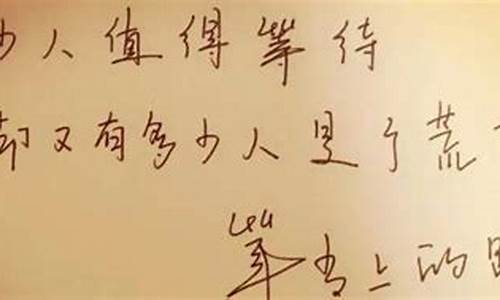 少人值得等待
却又有多少人是了荒
等上的